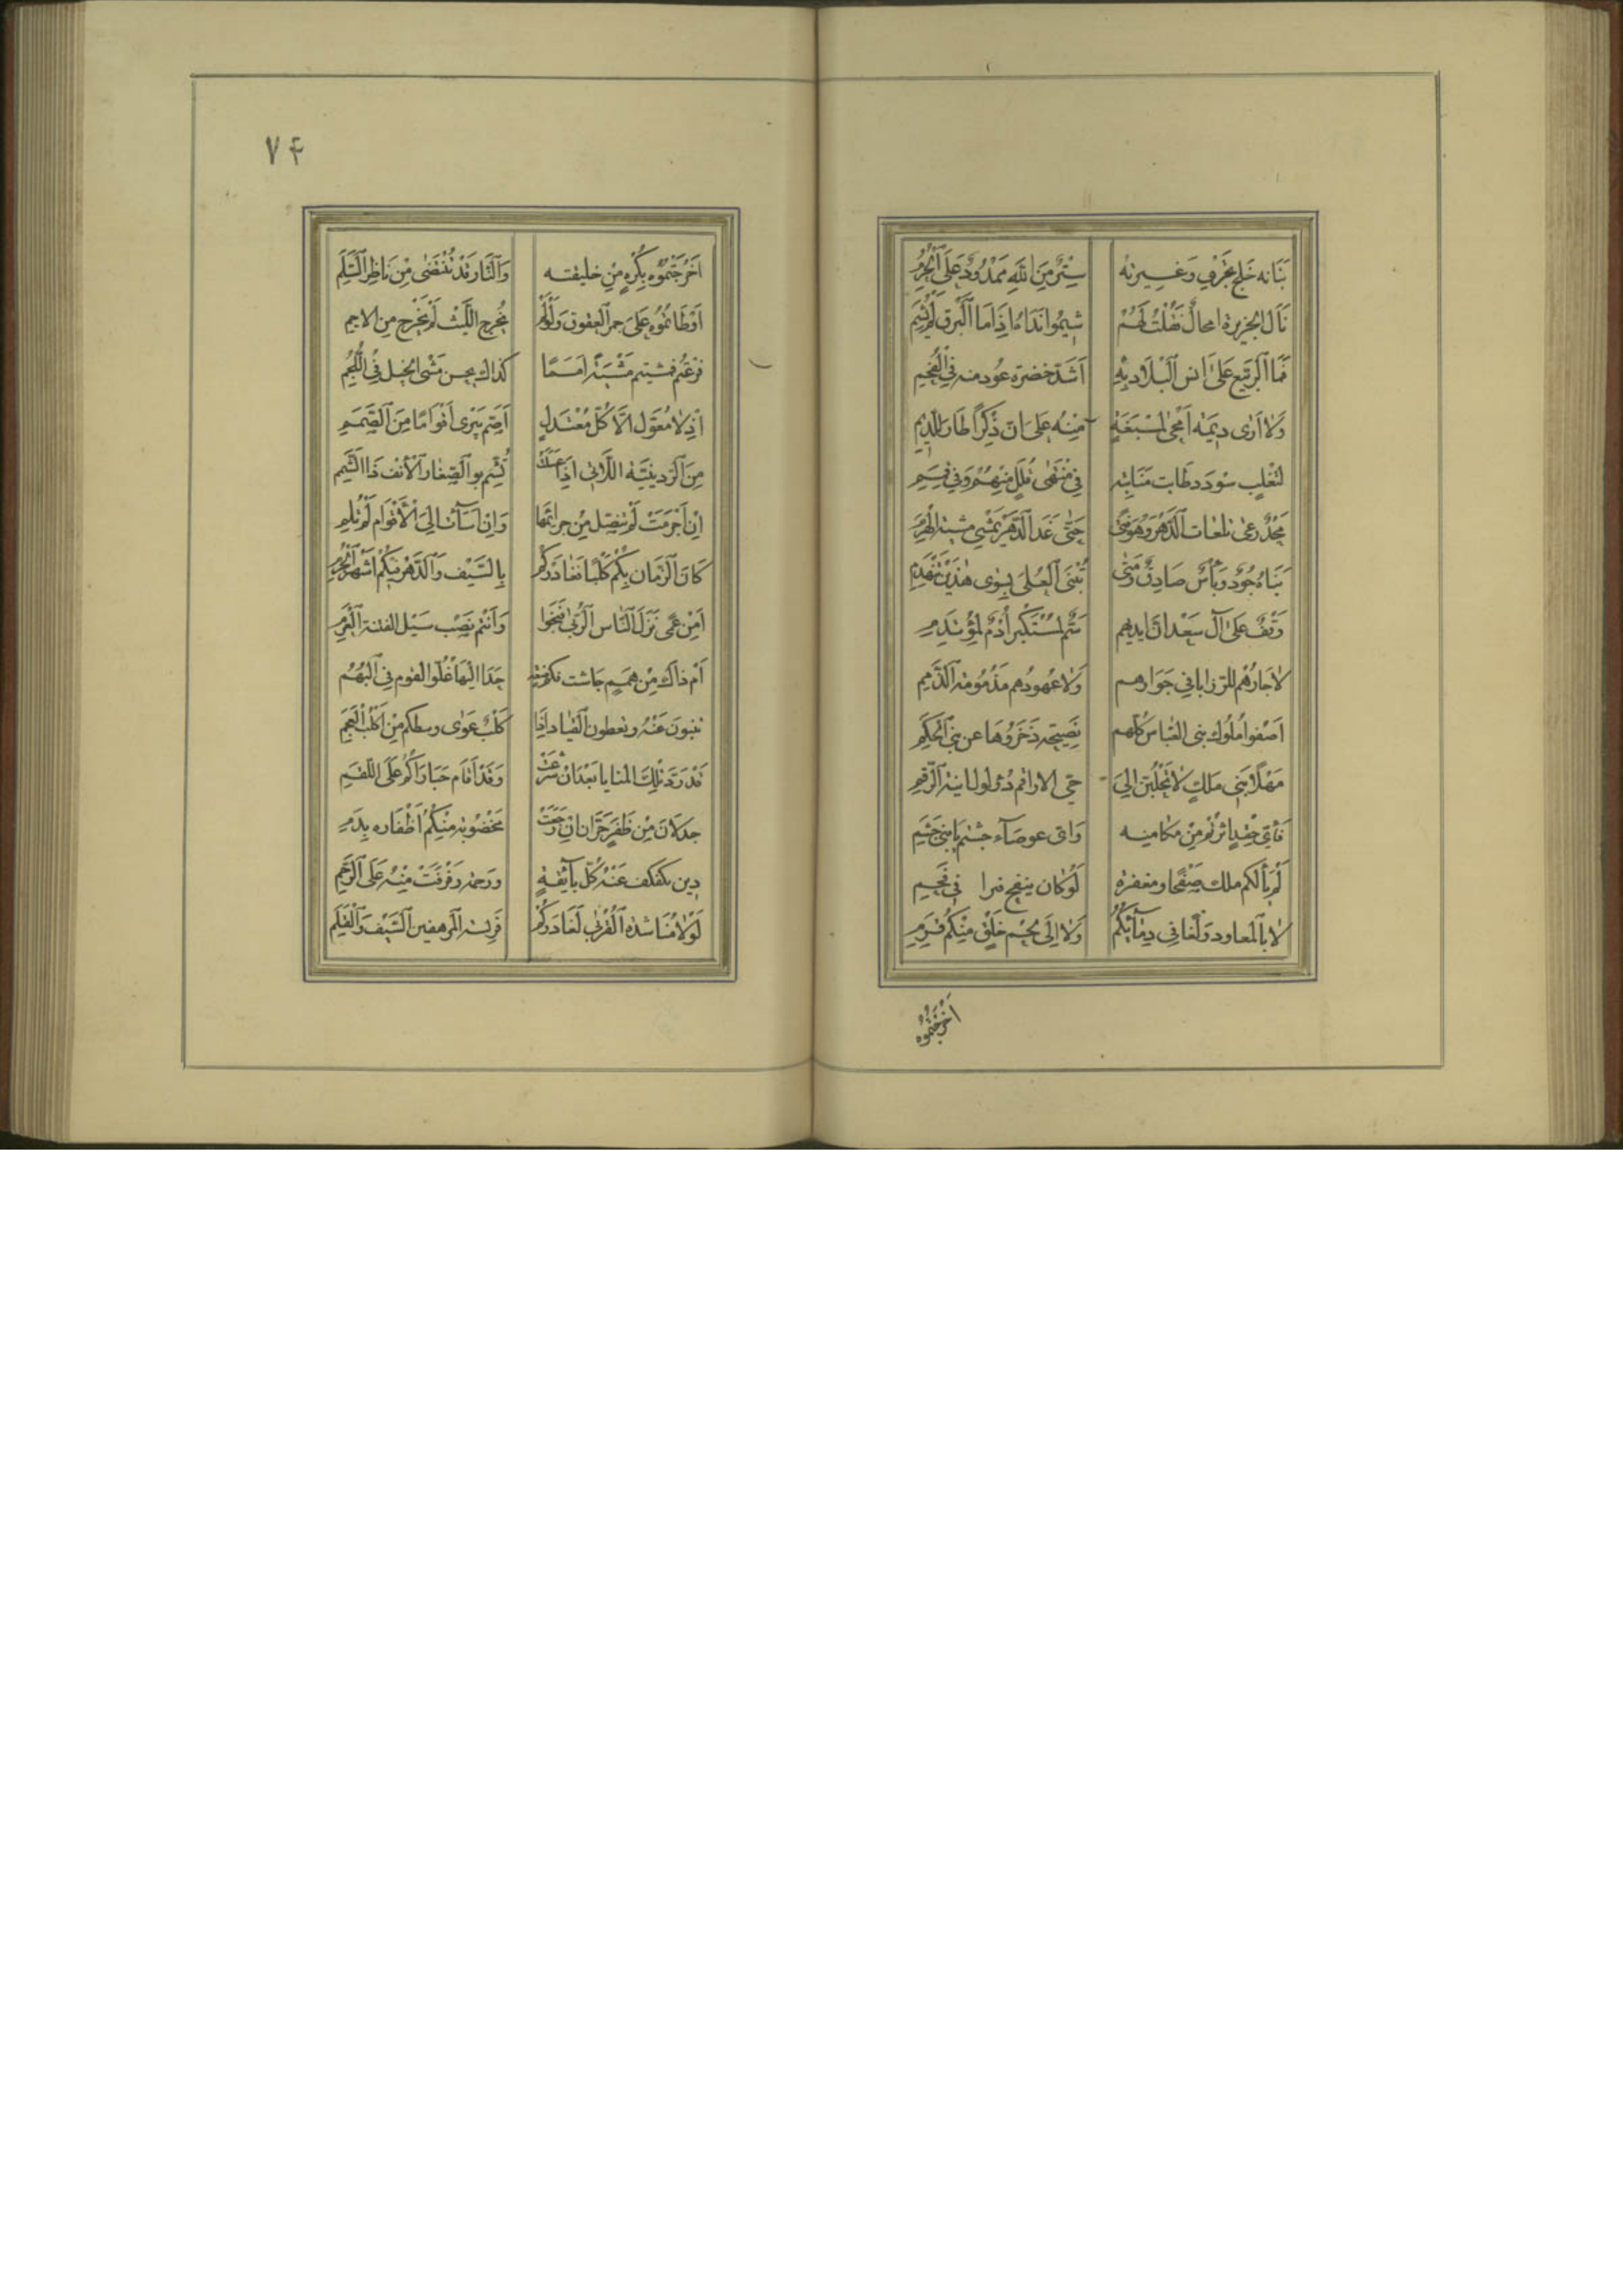 بنانه خلج تجري وغيرته ستر من الله ممدود على الحرم
نال الجزيرة امحال فقلت لهم شيموا نداه اذا ما البرق لم يشم
فما الربيع على انس البلاد به اشد خضرة عود منه في القحم
ولا ارى ديمة امحى لمسغبة منه على ان ذكرا طار للديم
لتغلب سودد طابت منابته في منتهى قلل منهم وفي قمم
مجد رعى تلعات الدهر وهو فتى حتى غدا الدهر يمشي مشية الهرم
بناه جود وبأس صادق ومتى تبنى العلى بسوى هذين تنهدم
وقف على آل سعد ان ايديهم سم لمستكبر أدم لمؤتدم
لا جارهم للرزايا في جوارهم ولا عهودهم مذمومة الذمم
اصفوا ملوك بني العباس كلهم نصيحة ذخروها عن بني الحكم
مهلا بني ملك لا تجلبن الى حي الاراقم دؤلول ابنة الرقم
فأي حقد اثرتم من مكامنه واي عوصاء جشتم يا بني جشم
لم يألكم ملك صفحا ومغفرة لو كان ينفخ في فحم
لا بالمعاود ولغا في دمائكم ولا الى لحم خلق منكم قرم
اخرجتموه
٧٤
اخرجتموه بكره من خليقته والنار قد تنتضى من ناظر السلم
اوطأتموه على جمر العقوق ولو لم يخرج الليث لم يخرج من الاجم
قدعتم فمشيتم مشية امما كذاك يحسن مشي الخيل في اللجم
اذ لا معول الا كل معتدل اصم يبري اقواما من الصمم
من الردينية اللاتي اذا عسلت تشم بو الصغار الأنف ذا الشمم
ان اجرمت لم تنصل من جرائمها وان اسأت الى الأقوام لم تلم
كان الزمان بكم كلبا فغادركم بالسيف والدهر فيكم اشهر الحرم
امن عمى نزل الناس الربى فنجوا وأنتم نصب سيل الفتنة العرم
ام ذاك من همم جاشت حدا اليها غلو القوم في البهم
تنبون عنه وتعطون القياد اذا كلب عوى وسطكم من اكلب العجم
قد رد تلك المنايا بعد ان شرعت وقد أقام حيارآكم على اللقم
جدلان من ظفر حران ان رجعت مخضوبة منكم أظفاره بدم
دين يكفكف عنه كل بائقة ورحمة رفرفت منه على الرحم
لولا مناشدة القربى لغادركم فريسة المرهفين السيف والقلم